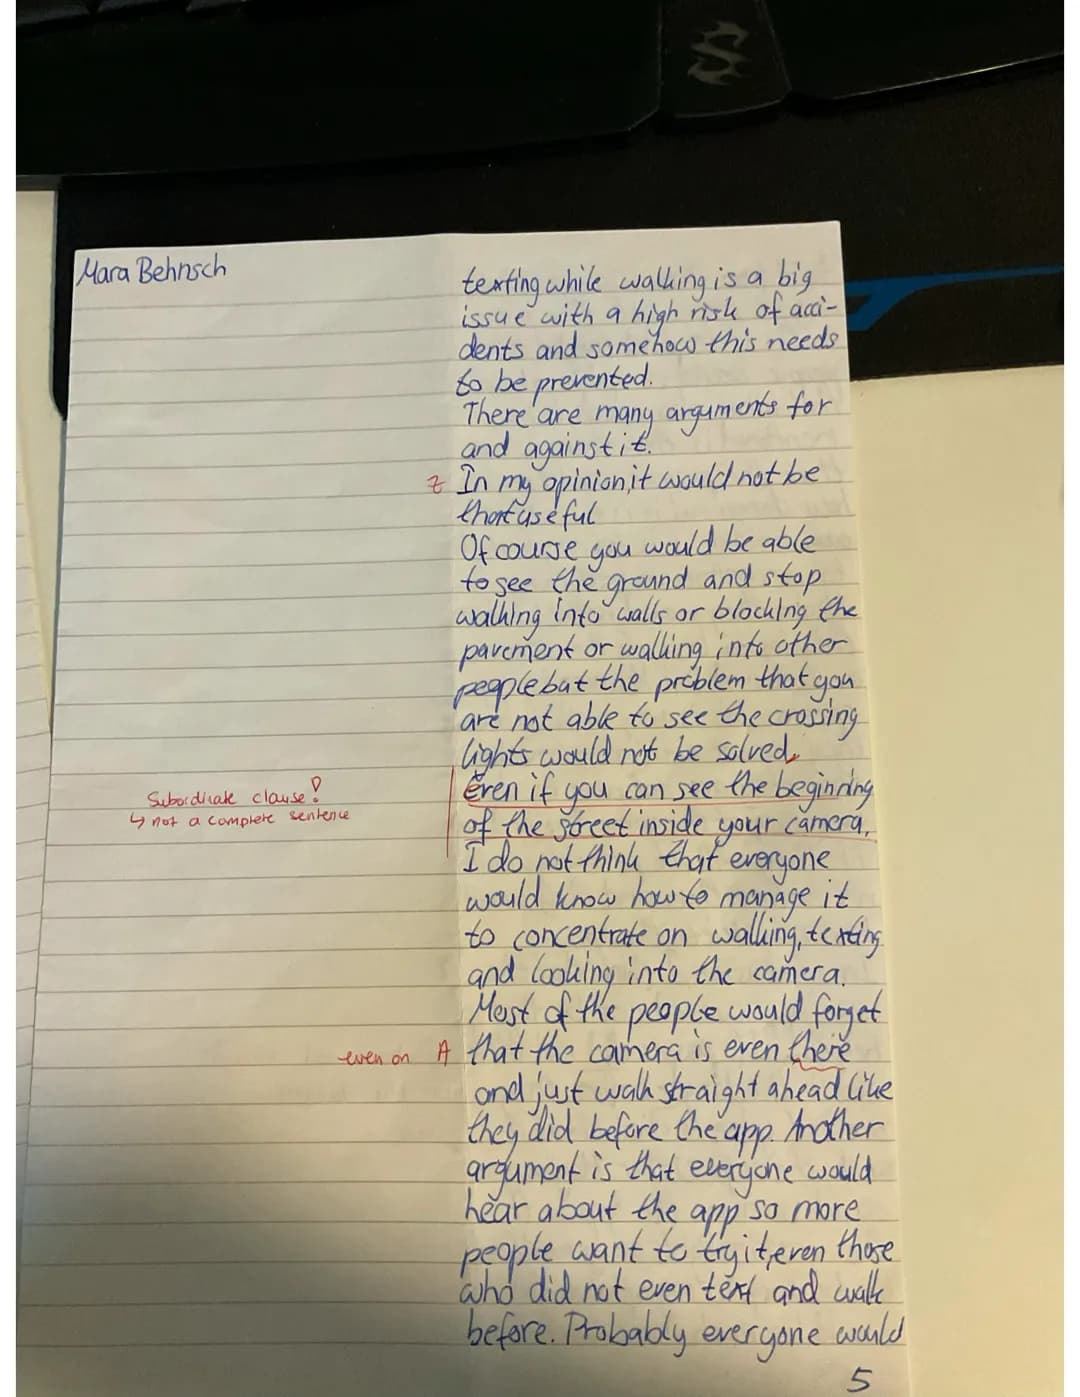 Mara Behnsch
texting while walking is a big
issue with a high risk of acci-
dents and somehow this needs
to be prevented.
There are many arguments for
and against it.
Z In my opinion, it would not be
that useful
Of course you would be able
to see the ground and stop
walking into walls or blocking the
pavement or walking into other
people but the problem that you
are not able to see the crossing
lights would not be solved.
Even if you can see the beginning
Subordinate clause!
↳ not a complete sentence
of the street inside your camera,
I do not think that everyone
would know how to manage it
to concentrate on walking, texting
and looking into the camera.
Most of the people would forget
even on A that the camera is even there
and just walk straight ahead like
they did before the app. Another
argument is that everyone would
hear about the app so more
people want to try it, even those
who did not even text and walk
before. Probably everyone would
5